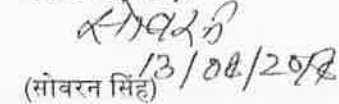 सोवरन
(सोवरन सिंह) 13/08/2018